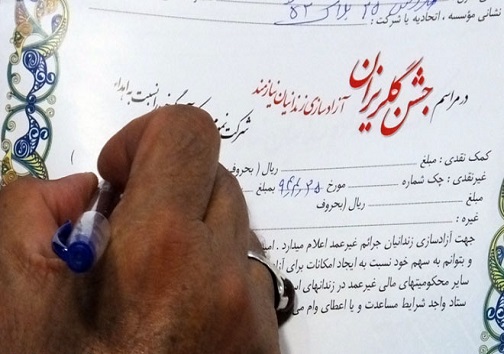 نشانی مؤسسه ، اتحادیه یا شرکت :
در مراسم جشن گلریزان آزادسازی زندانیان نیازمند
شرکت
کمک نقدی : مبلغ ریال ( بحروف )
غیرنقدی : چک شماره مورخ بمبلغ
مبلغ ریال (بحروف
غیره :
جهت آزادسازی زندانیان جرائم غیرعمد اعلام میدارد .
و بتوانم به سهم خود نسبت به ایجاد امکانات برای
سایر محکومیتهای مالی غیرعمد در زندانهای
ستاد واجد شرایط مساعدت و یا اعطای وام